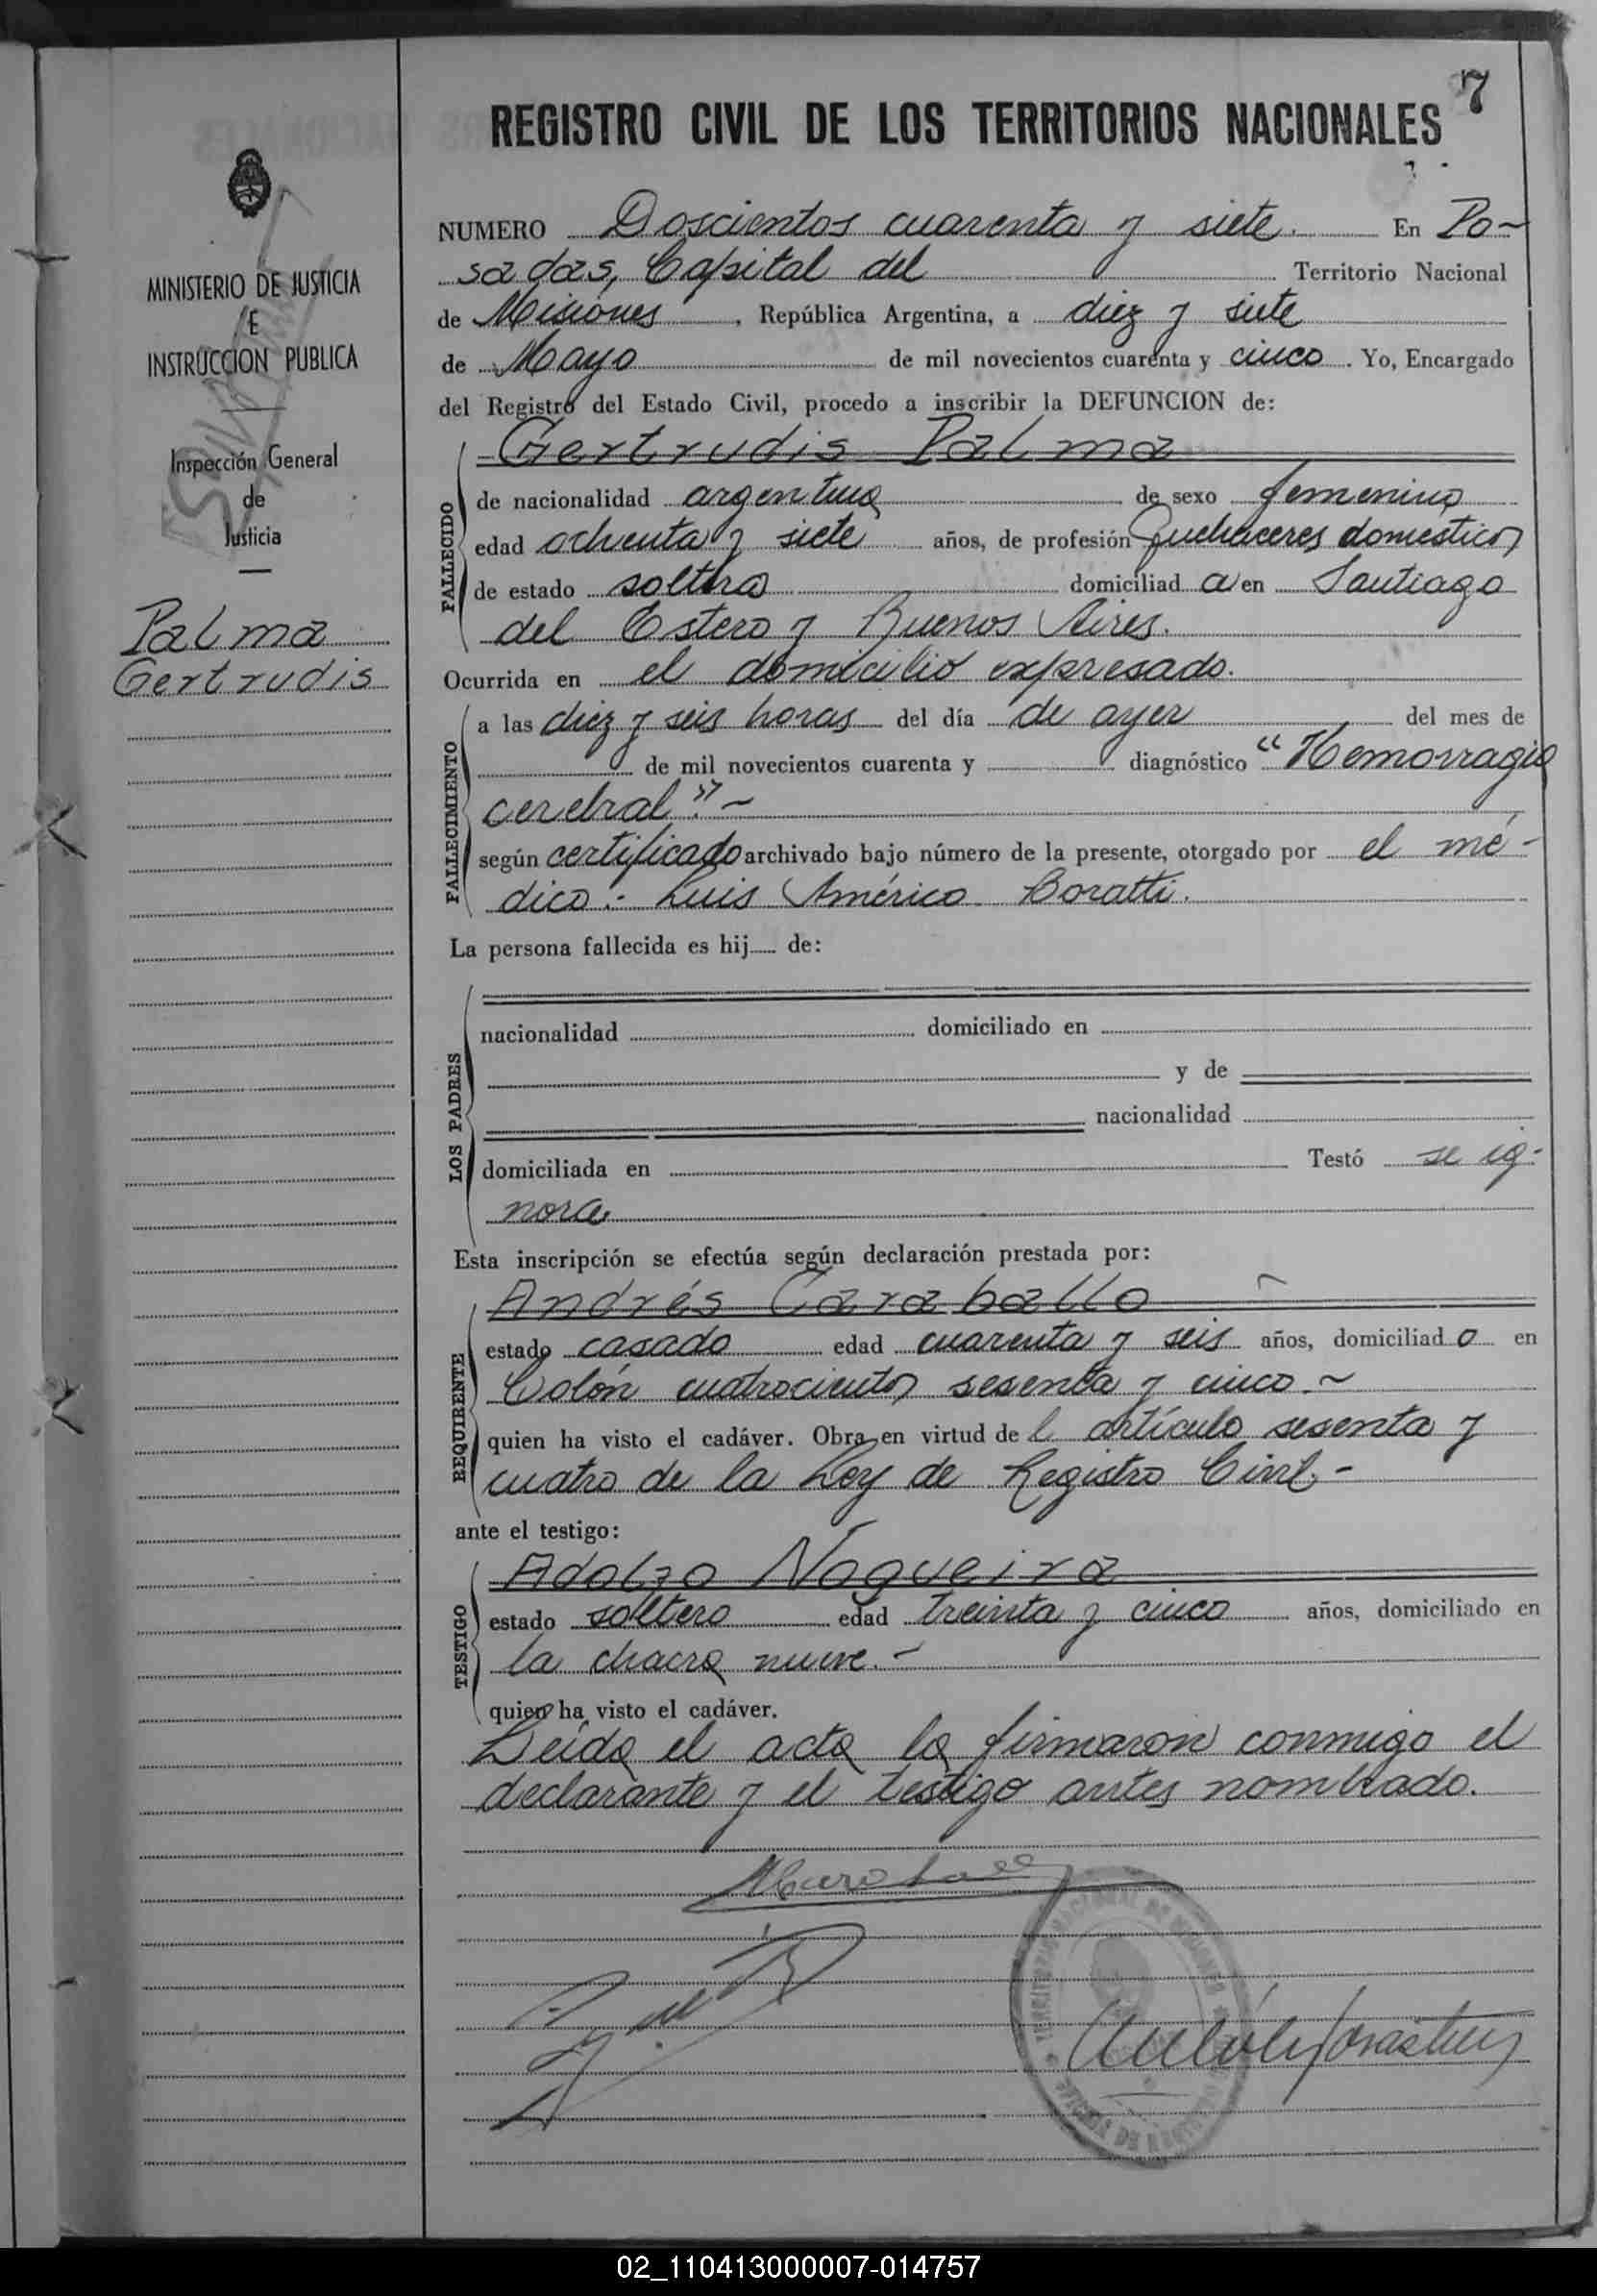 7
REGISTRO CIVIL DE LOS TERRITORIOS NACIONALES
MINISTERIO DE JUSTICIA
E
INSTRUCCION PUBLICA
Inspección General
de
Justicia
Palma
Gertrudis
NUMERO Doscientos cuarenta y siete. En Po-
sadas, Capital del Territorio Nacional
de Misiones, República Argentina, a diez y siete
de Mayo de mil novecientos cuarenta y cinco. Yo, Encargado
del Registro del Estado Civil, procedo a inscribir la DEFUNCION de:
Gertrudis Palma
FALLECIDO
de nacionalidad argentina de sexo femenino
edad ochenta y siete años, de profesión Quehaceres domesticos
de estado soltera domiciliad a en Santiago
del Estero y Buenos Aires.
Ocurrida en el domicilio expresado.
FALLECIMIENTO
a las diez y seis horas del día de ayer del mes de
de mil novecientos cuarenta y diagnóstico "Hemorragia
cerebral".-
según certificado archivado bajo número de la presente, otorgado por el mé-
dico.- Luis Américo Coratti.
La persona fallecida es hij de:
LOS PADRES
nacionalidad domiciliado en
y de
nacionalidad
domiciliada en Testó se ig-
nora
Esta inscripción se efectúa según declaración prestada por:
Andrés Caraballo
REQUIRENTE
estado casado edad cuarenta y seis años, domiciliad o en
Colón cuatrocientos sesenta y cinco.-
quien ha visto el cadáver. Obra en virtud de l artículo sesenta y
cuatro de la Ley de Registro Civil.-
ante el testigo:
Adolfo Nogueira
TESTIGO
estado soltero edad treinta y cinco años, domiciliado en
la chacra nueve.-
quien ha visto el cadáver.
Leida el acta la firmaron conmigo el
declarante y el testigo antes nombrado.
02_110413000007-014757